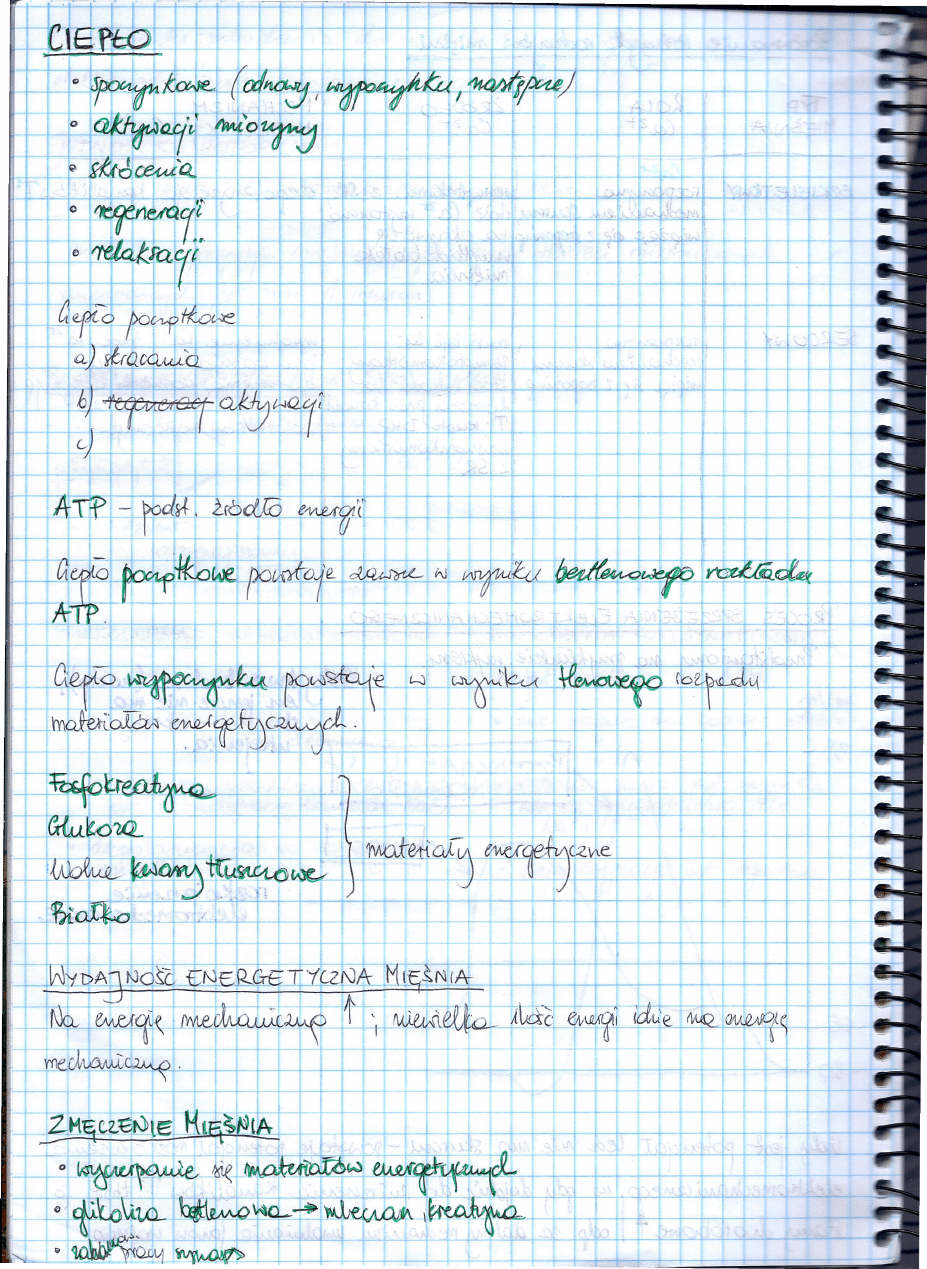 CIEPŁO
• spoczynkowe (odnowy, wypoczynku, następcze)
• aktywacji miozyny
• skrócenia
• regeneracji
• relaksacji
Ciepło początkowe
a) skracania
b) regeneracj aktywacji
c)
ATP – podst. źródło energii
Ciepło początkowe powstaje zawsze w wyniku beztlenowego rozkładu
ATP.
Ciepło wypoczynku powstaje w wyniku tlenowego rozpadu
materiałów energetycznych.
Fosfokreatyna
Glukoza
Wolne kwasy tłuszczowe
Białko
materiały energetyczne
WYDAJNOŚĆ ENERGETYCZNA MIĘŚNIA
Na energię mechaniczną ↑ ; niewielka ilość energi idzie na energię
mechaniczną.
ZMĘCZENIE MIĘŚNIA
• wyczerpanie się materiałów energetycznych
• glikoliza beztlenowa → mleczan, kreatyna
• pracy synaps